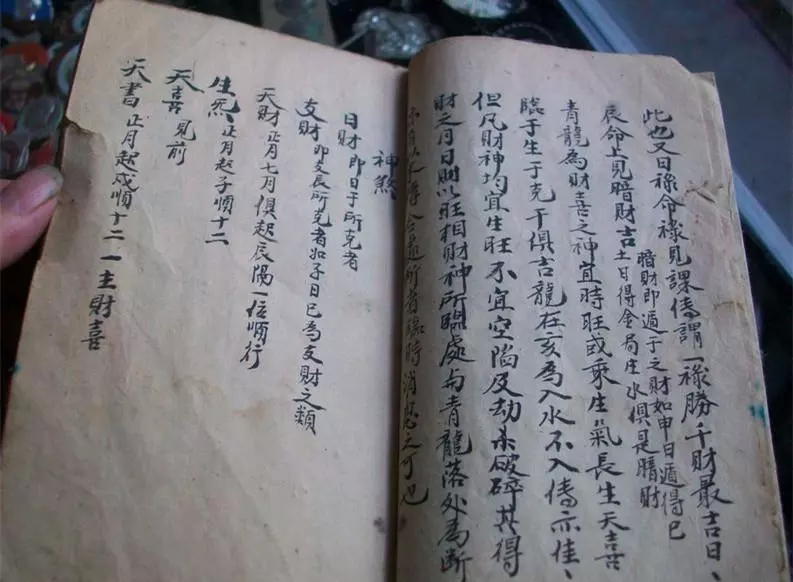 此也又曰祿命祿見課傳謂一祿勝千財最吉日、
辰命上見暗財吉
暗財即遁于之財如申日遁得巳
土日得金局庄水俱是暗財
青龍為財喜之神宜時旺或乘生氣長生天喜
臨于生于克干俱吉龍在亥為入水不入傳亦佳、
但凡財神均宜生旺不宜空陷及劫杀破碎其得
財之月日則以旺相財神所臨處与青龍落处為断
得合所者臨時消息之可也
神煞
日財 即日于所克者
支財 即支辰所克者如子日巳為支財之類
天財 正月七月俱起辰陽一位順行
生炁 正月起子順十二
天喜 見前
天書 正月起戌順十二 一主財喜